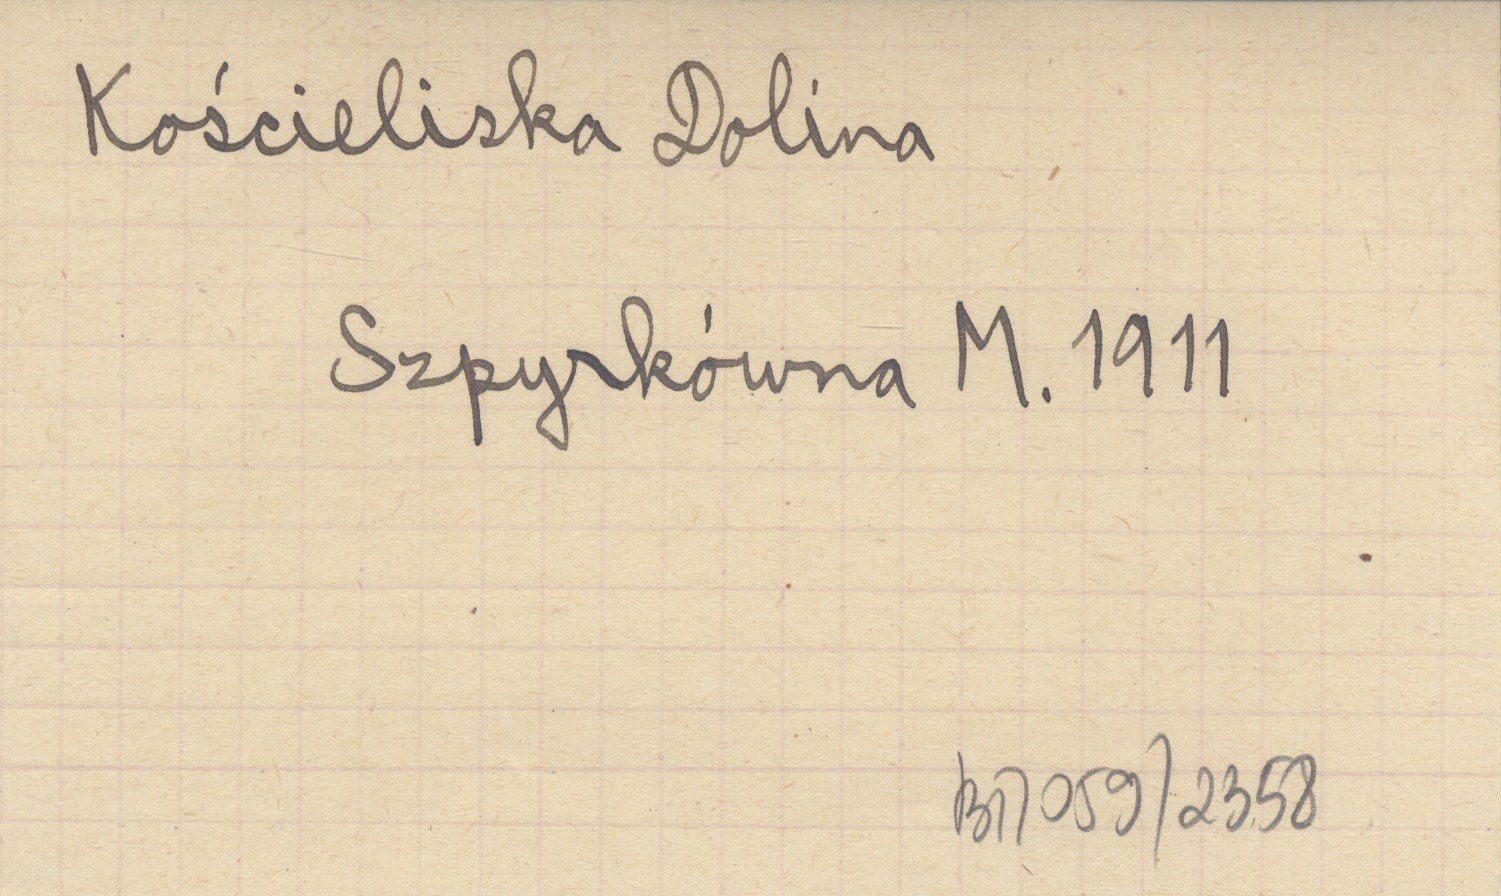 Kościeliska Dolina
Szpyrkówna M. 1911
059/2358